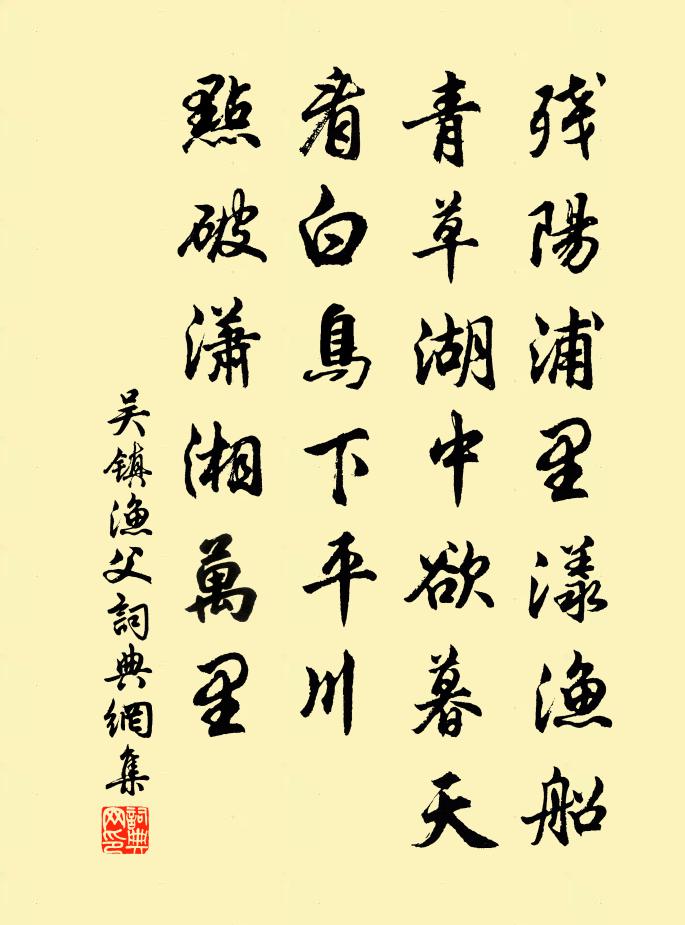 残陽浦里漾漁船
青草湖中欲暮天
看白鳥下平川
點破瀟湘萬里
吴镇漁父詞典網集
詞典網印